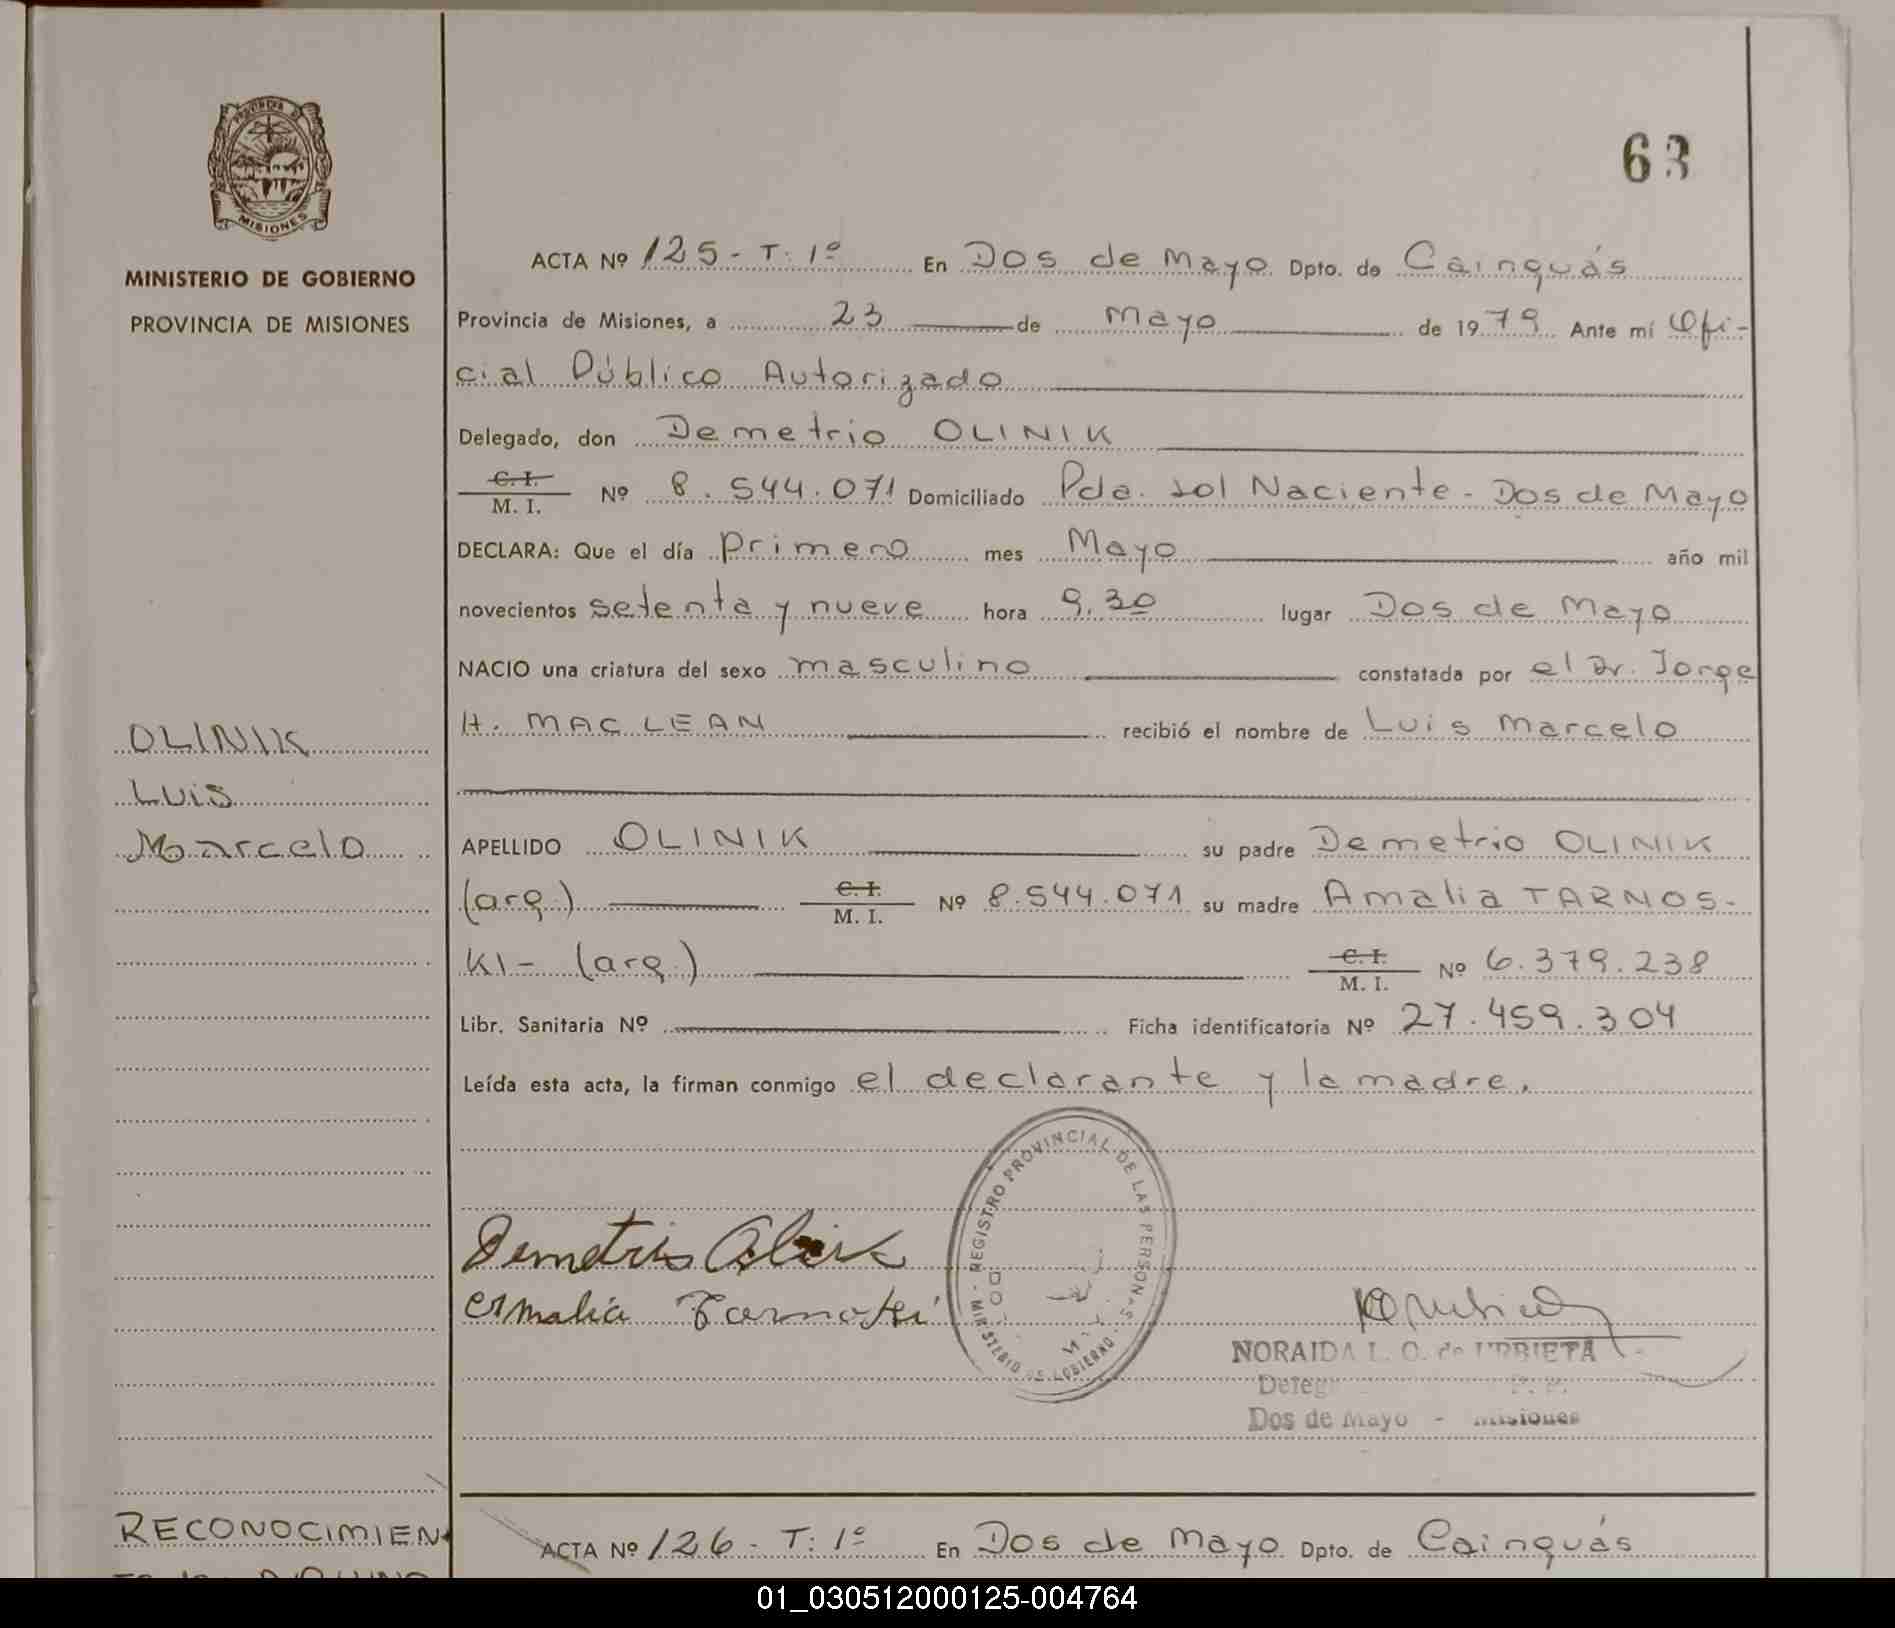 PROVINCIA DE
MISIONES
MINISTERIO DE GOBIERNO
PROVINCIA DE MISIONES
63
ACTA Nº 125 - T: 1º En Dos de Mayo Dpto. de Cainguás
Provincia de Misiones, a 23 de Mayo de 1979 Ante mí Ofi-
cial Público Autorizado
Delegado, don Demetrio OLINIK
C. I.
M. I. Nº 8.544.071 Domiciliado Pda. Sol Naciente - Dos de Mayo
DECLARA: Que el día primero mes Mayo año mil
novecientos setenta y nueve hora 9.30 lugar Dos de Mayo
NACIO una criatura del sexo masculino constatada por el Dr. Jorge
H. MAC LEAN recibió el nombre de Luis Marcelo
OLINIK
LUIS
Marcelo
APELLIDO OLINIK su padre Demetrio OLINIK
(arg.) C. I.
M. I. Nº 8.544.071 su madre Amalia TARNOS-
KI - (arg.) C. I.
M. I. Nº 6.379.238
Libr. Sanitaria Nº Ficha identificatoria Nº 27.459.304
Leída esta acta, la firman conmigo el declarante y la madre.
REGISTRO PROVINCIAL DE LAS PERSONAS
MINISTERIO DE GOBIERNO
Demetrio
Amalia Tarnoski
NORAIDA L. O. de URBIETA
Dos de Mayo - Misiones
RECONOCIMIEN
ACTA Nº 126 - T: 1º En Dos de Mayo Dpto. de Cainguás
01_030512000125-004764